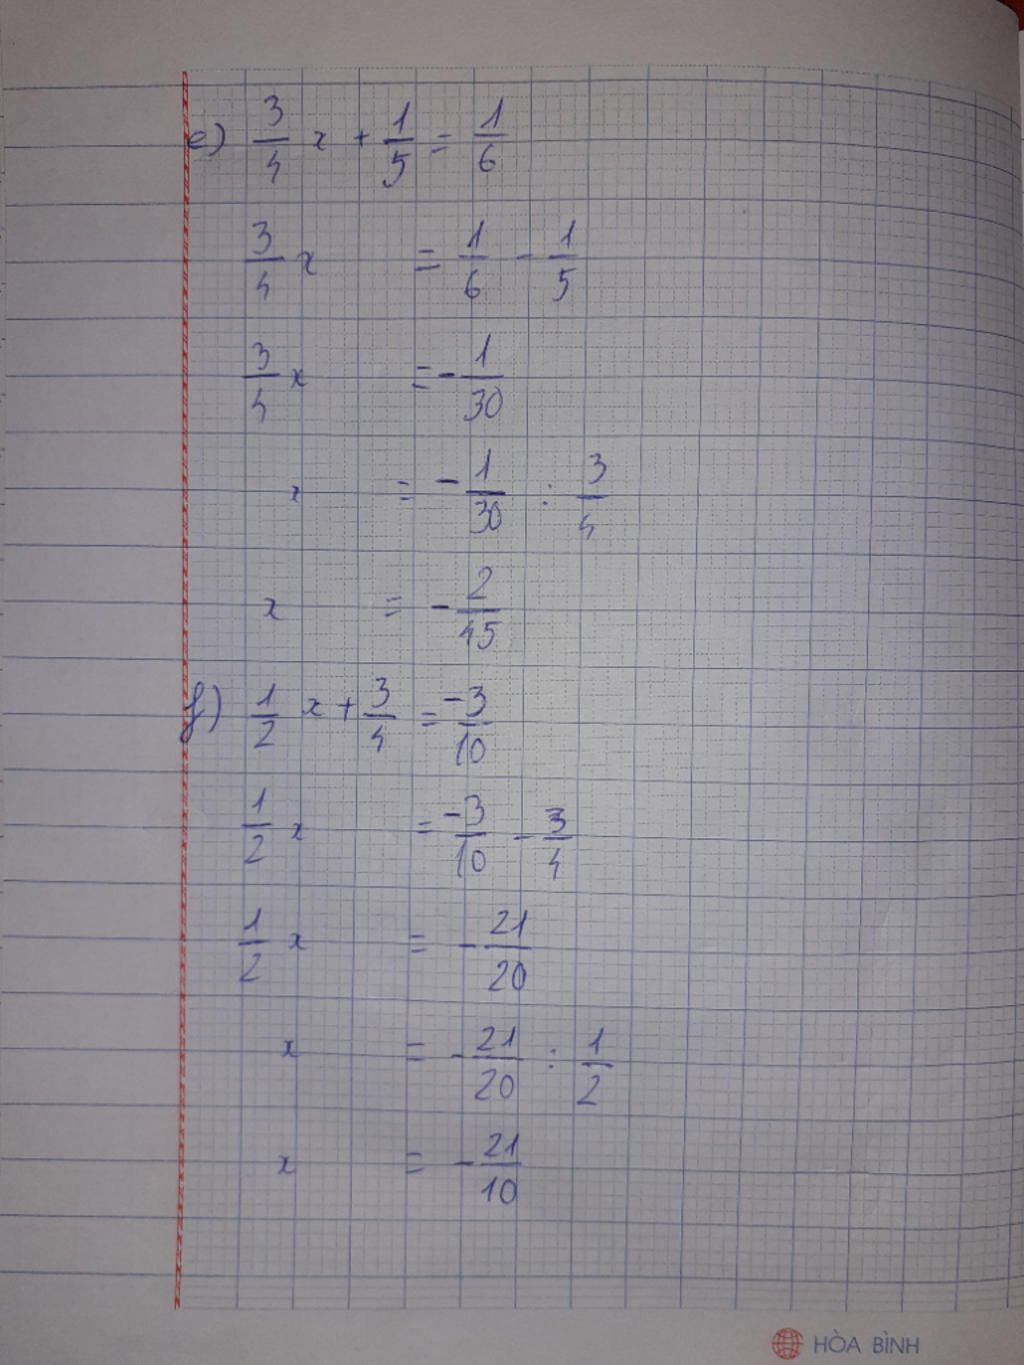 e) 3/4 x + 1/5 = 1/6
3/4 x = 1/6 - 1/5
3/4 x = - 1/30
x = - 1/30 : 3/4
x = - 2/45
f) 1/2 x + 3/4 = -3/10
1/2 x = -3/10 - 3/4
1/2 x = - 21/20
x = - 21/20 : 1/2
x = - 21/10
HÒA BÌNH